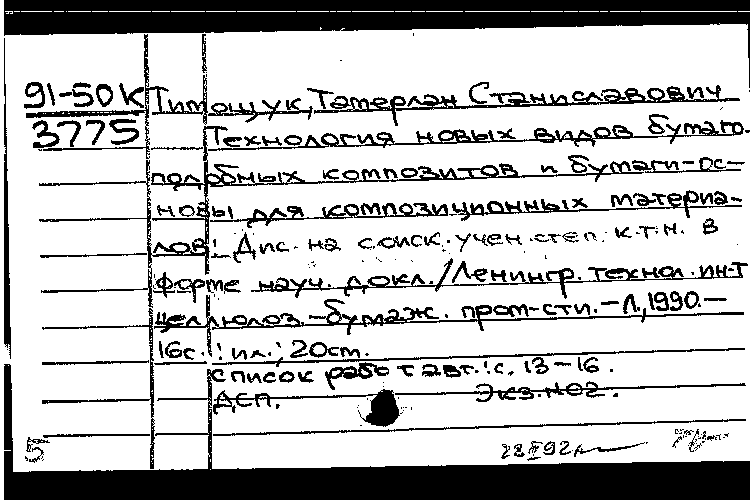 91-50К Тимощук, Тамерлан Станиславович
3775 Технология новых видов бумаго-
подобных композитов и бумаги-ос-
новы для композиционных материа-
лов: Дис. на соиск. учен. степ. к.т.н. в
форме науч. докл./Ленингр. технол. ин-т
целлюлоз.-бумаж. пром-сти.-Л., 1990.-
16с.: ил.; 20см.
Список работ авт.: с. 13-16.
ДСП. Экз. №02.
5 28 II 92